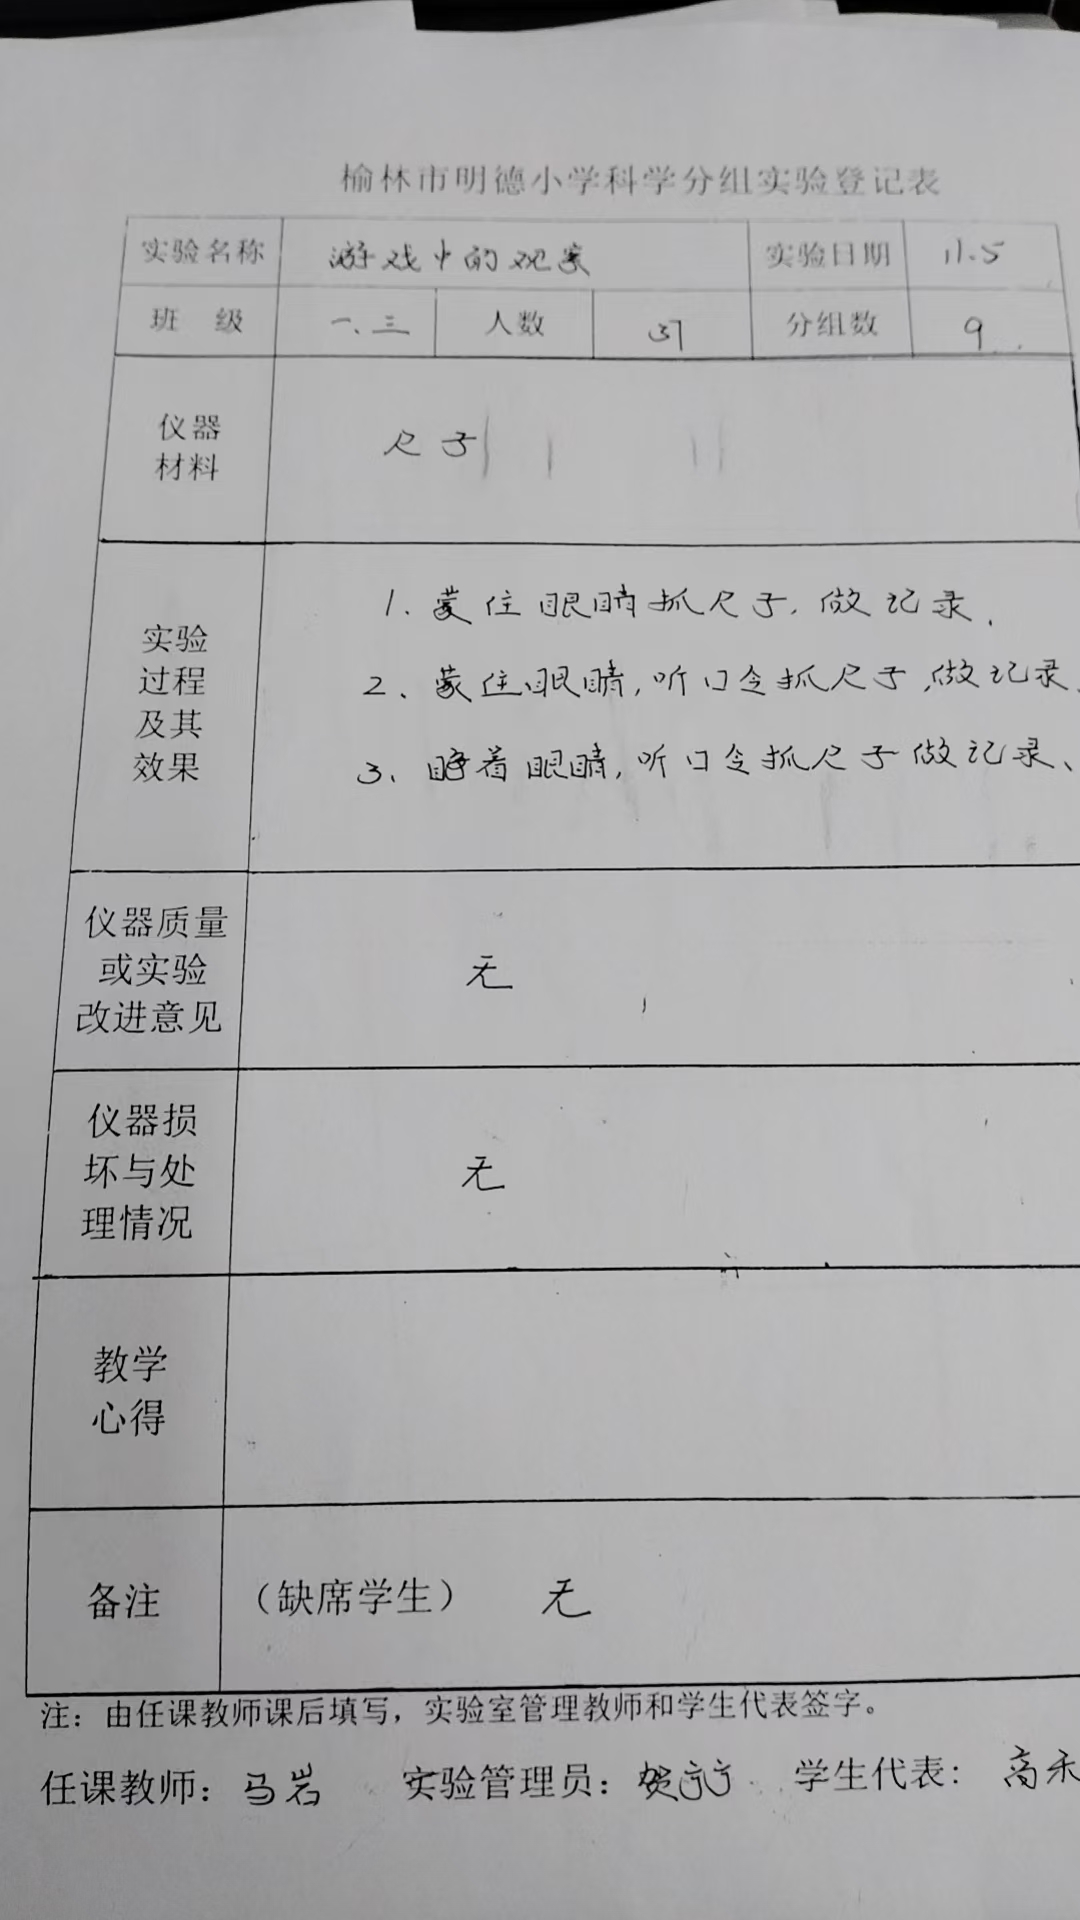 榆林市明德小学科学分组实验登记表
实验名称 游戏中的观察 实验日期 11.5
班 级 一.三 人数 37 分组数 9
仪器
材料
尺子
实验
过程
及其
效果
1. 蒙住眼睛抓尺子,做记录.
2、蒙住眼睛,听口令抓尺子,做记录.
3、睁着眼睛,听口令抓尺子做记录、
仪器质量
或实验
改进意见
无
仪器损
坏与处
理情况
无
教学
心得
备注 (缺席学生) 无
注：由任课教师课后填写，实验室管理教师和学生代表签字。
任课教师：马岩 实验管理员：贺 学生代表：高禾